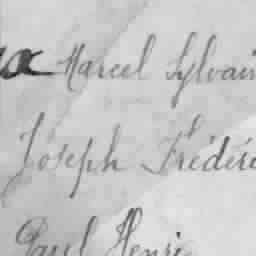 Marcel Sylvain
Joseph Frédéric
Paul Henri